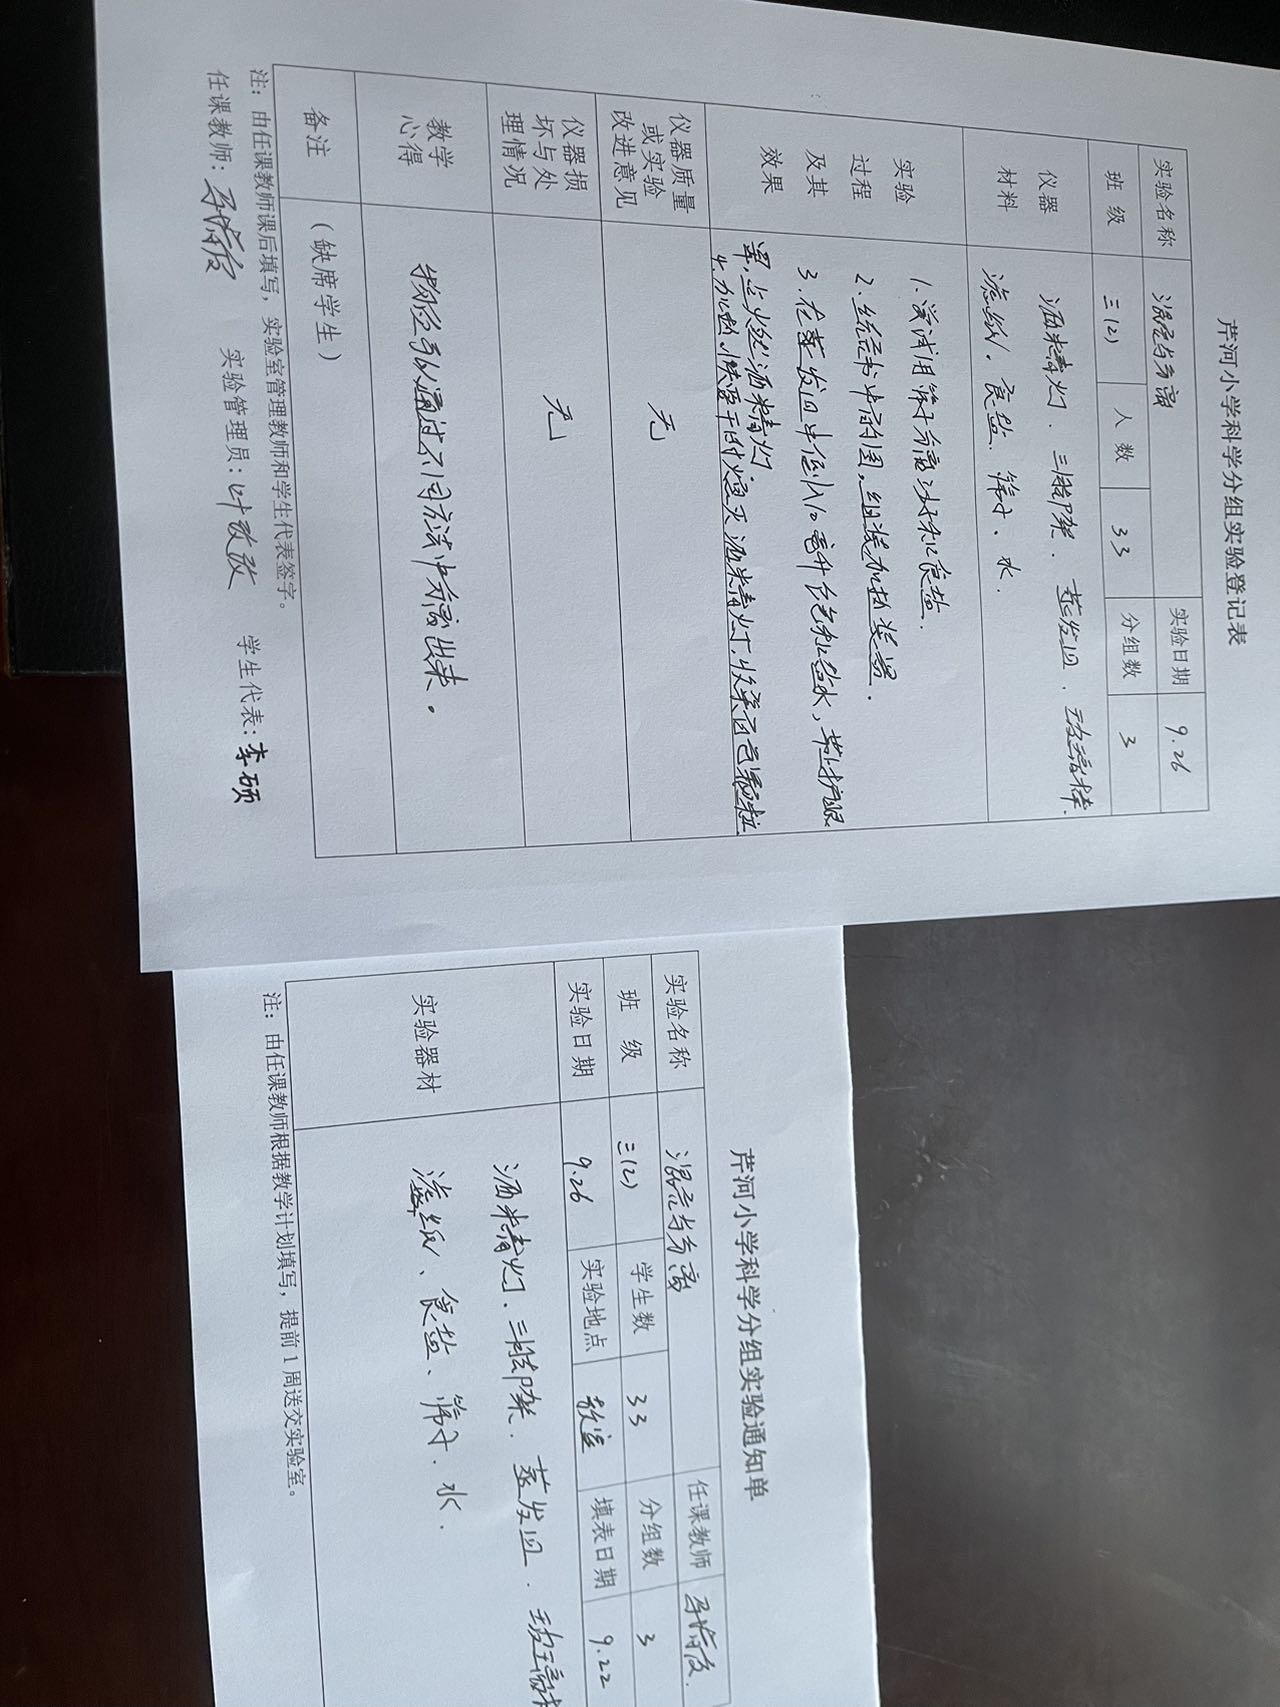 芹河小学科学分组实验登记表
实验名称 混合与分离 实验日期 9.26
班 级 三(2) 人 数 33 分组数 3
仪器材料 酒精灯、三脚架、蒸发皿、玻璃棒、
滤纸、食盐、筛子、水.
实验过程及其效果
1.尝试用筛子分离沙和食盐.
2.结合书中的图,组装加热装置.
3.在蒸发皿中倒入10毫升食盐水,带上护眼
罩,点火燃酒精灯.
4.加热、快要干时熄灭酒精灯,收集白色颗粒
仪器质量或实验改进意见 无
仪器损坏与处理情况 无
教学心得 物质可以通过不同方法中分离出来。
备注 (缺席学生)
注:由任课教师课后填写,实验室管理教师和学生代表签字。
任课教师: 实验管理员:叶改改 学生代表:李硕
芹河小学科学分组实验通知单
实验名称 混合与分离 任课教师
班 级 三(2) 学生数 33 分组数 3
实验日期 9.26 实验地点 教室 填表日期 9.22
实验器材 酒精灯、三脚架、蒸发皿、玻璃棒
滤纸、食盐、筛子、水.
注:由任课教师根据教学计划填写,提前1周送交实验室。